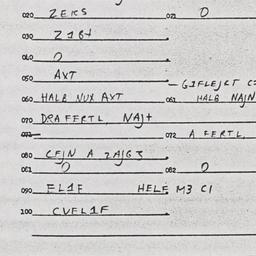 020 ZEKS 021 0
030 Z184
040 0
050 AXT
060 HALB NUX AXT 061 HALB NAJN
070 DRAFERTL NAJ+
072 A FERTL
080 CEJN A ZAJG3
081 0 082 0
090 EL1F HELF M3 CI
100 CVEL1F